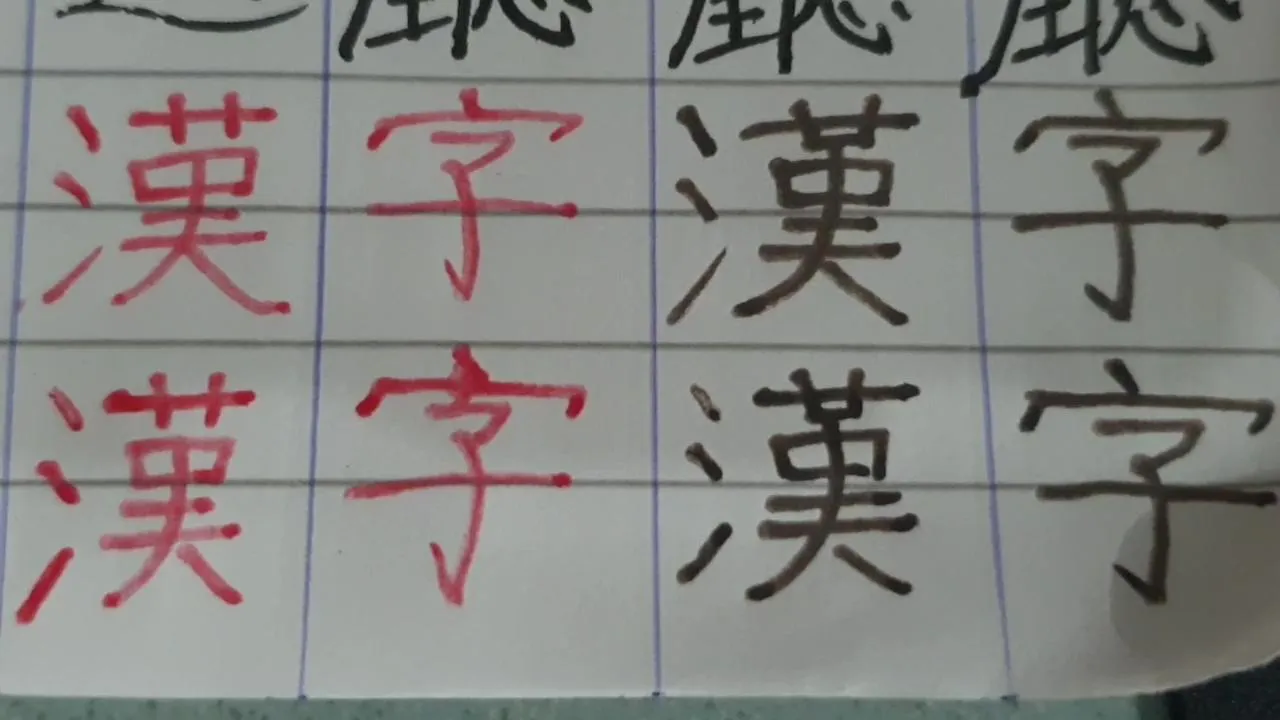 漢字漢字
漢字漢字